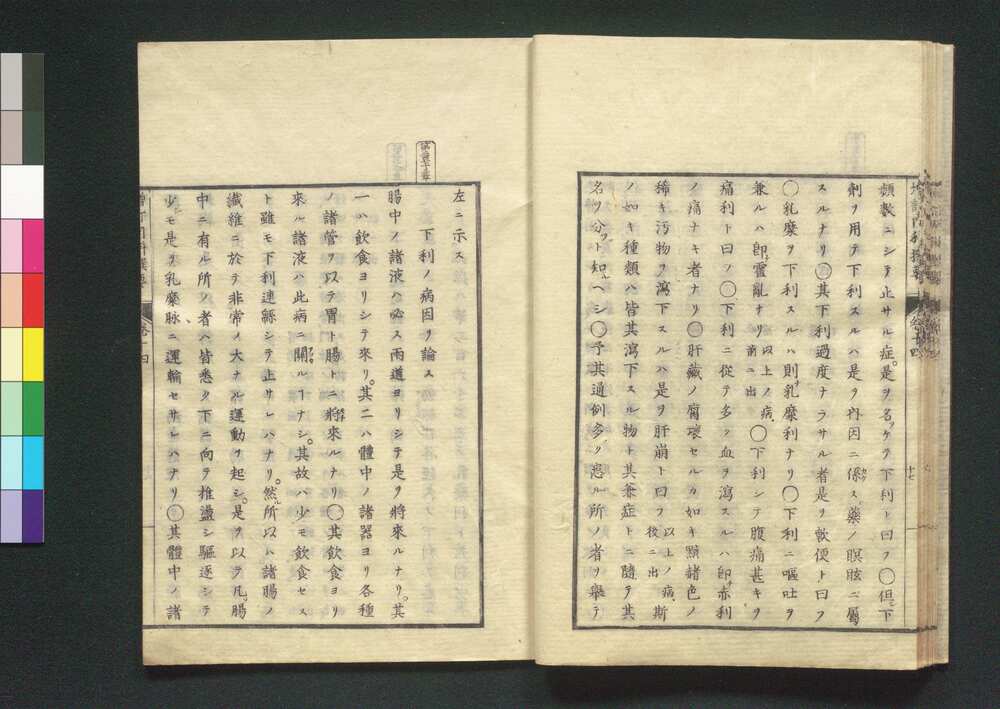 頻數ニシテ止サル症。是ヲ名ケテ下利ト曰フ〇但下
劑ヲ用テ下利スルハ是ヲ外因ニ係ス藥ノ瞑眩ニ屬
スルナリ〇其下利過度ナラサル者是ヲ軟便ト曰フ
〇乳糜ヲ下利スルハ則乳糜利ナリ〇下利ニ嘔吐ヲ
兼ルハ即霍亂ナリ以上ノ病。前ニ出〇下利シテ腹痛甚キヲ
痛利ト曰ノ〇下利ニ從テ多ク血ヲ瀉スルハ即赤利
ノ痛ナキ者ナリ〇肝臟ノ腐壞セルカ如キ顆諸色ノ
稀キ汚物ヲ瀉下スルハ是ヲ肝崩ト曰フ以上ノ病。後ニ出斯
ノ如キ種類ハ皆其瀉下スル物ト其兼症トニ隨テ其
名ヲ分ト知ヘシ〇予其通例多ク患ル所ノ者ヲ擧テ
十七
左ニ示ス
下利ノ病因ヲ論ス
腸中ノ諸液ハ必ス兩道ヨリシテ是ヲ將來ルナリ。其
一ハ飲食ヨリシテ來リ。其二ハ體中ノ諸器ヨリ各種
ノ諸管ヲ以テ胃ト腸トニ將來ルナリ〇其飲食ヨリ
來ル諸液ハ此病ニ關ルヿナシ。其故ハ少モ飲食セス
ト雖モ下利連緜シテ止サレハナリ。然所以ハ諸腸ノ
纎維ニ於テ非常ノ大ナル運動ヲ起シ。是ヲ以テ凡腸
中ニ有ル所ノ者ハ皆悉ク下ニ向テ推盪シ驅逐シテ
少モ是ヲ乳糜脉ニ運輸セサレハナリ〇其體中ノ諸